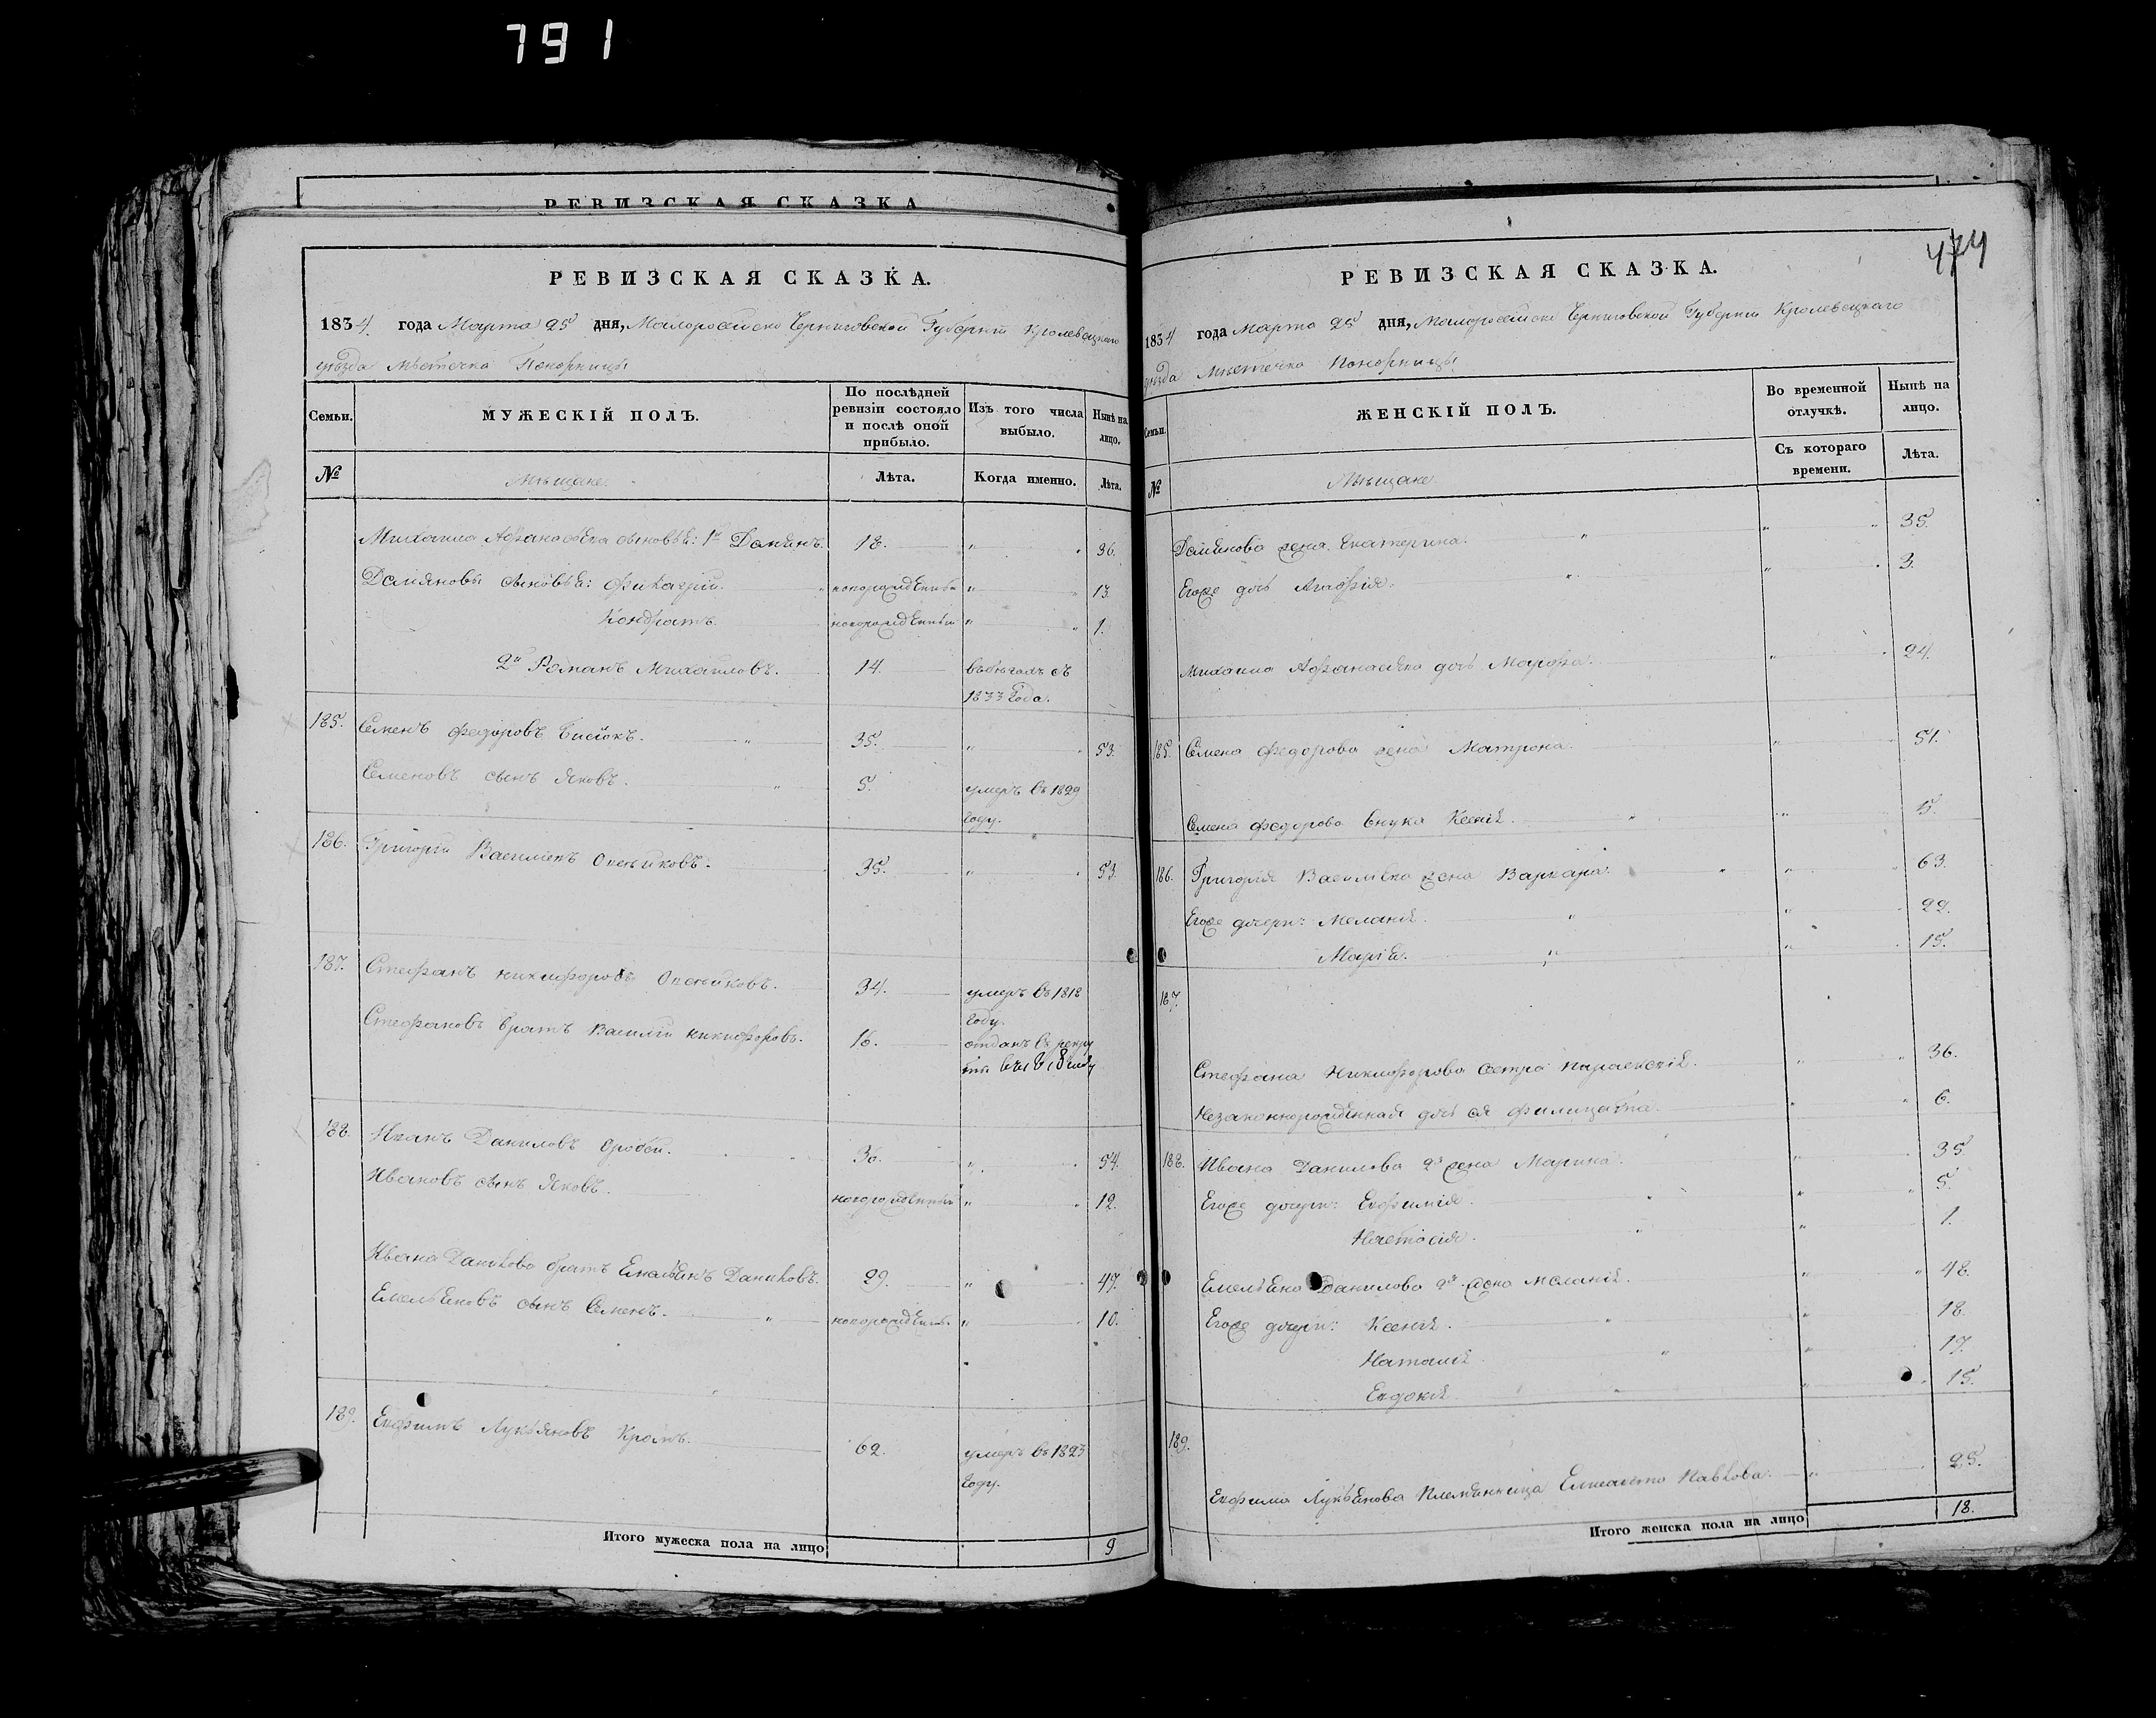 791
РЕВИЗСКАЯ СКАЗКА
РЕВИЗСКАЯ СКАЗКА.
1834 года Марта 25 дня, Малоросійско Черниговской Губерніи Кролевецкаго
уѣзда мѣстечка Понорницы
Семьи. МУЖЕСКІЙ ПОЛЪ. По послѣдней ревизіи состояло и послѣ оной прибыло. Изъ того числа выбыло. Нынѣ на лицо.
№ Мѣщане. Лѣта. Когда именно. Лѣта.
Михаила Афанасьева сыновья: 1й 18. " " 36.
Демяновы сыновья: новорожденный " " 13.
Кондратъ. новорожденный " " 1.
2й Романъ Михайловъ. 14. въ бѣгахъ съ
1833 года.
185. Семенъ Федоровъ 35. " " 53.
Семеновъ сынъ Яковъ. 5. умеръ въ 1829
году.
186. Григорій Васильевъ 35. " " 53.
187. Стефанъ Никифоровъ 34. умеръ въ 1818
году.
Стефановъ братъ Василій Никифоровъ. 16. отданъ въ рекру
ты въ
188. Иванъ Даниловъ 36. " " 54.
Ивановъ сынъ Яковъ. новорожденный " " 12.
Ивана Данилова братъ Емельянъ Даниловъ. 29. " " 47.
Емельяновъ сынъ Семенъ. " новорожденный. " " 10.
189. Евфимъ Лукьяновъ 62. умеръ въ 1823
году.
Итого мужеска пола на лицо 9
474
РЕВИЗСКАЯ СКАЗКА.
1834 года Марта 25 дня, Малоросійско Черниговской Губерніи Кролевецкаго
уѣзда Мѣстечка Понорницы
Семьи. ЖЕНСКІЙ ПОЛЪ. Во временной отлучкѣ. Нынѣ на лицо.
№ Мѣщане. Съ котораго времени. Лѣта.
Демянова жена Екатерина. " " " 35.
Егоже дочь Агафія. " " " 3.
Михаила Афанасьева дочь Марфа. " " 24.
185. Семена Федорова жена Матрона. " " 51.
Семена Федорова внука Ксенія. " " "
186. Григорія Васильева жена Варвара. " " " 63.
Егоже дочери: Меланія. " " " 22.
Марія. " " " 15.
187.
Стефана Никифорова сестра Параскевія. " " 36.
Незаконнорожденная дочь ея Филицата. " " 6.
188. Ивана Данилова 2я жена Марина. " 35.
Егоже дочери: Евфимія. " " " 5.
Настасія. " " 1.
Емельяна Данилова 2я жена Меланія. " " 48.
Егоже дочери: Ксенія. " " 18.
Наталія " " 17.
Евдокія. " " " 15.
189.
Евфима Лукьянова племянница Елисавета Павлова. " " 25.
Итого женска пола на лицо 18.